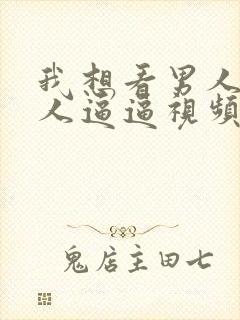 我想看男人
人逼逼視頻
鬼店主田七